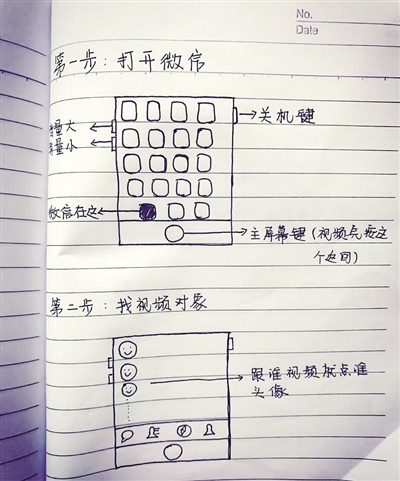 No.
Date
第一步：打开微信
音量大
音量小
关机键
微信在这
主屏幕键（视频完按这
个返回）
第二步：找视频对象
跟谁视频就点谁
头像